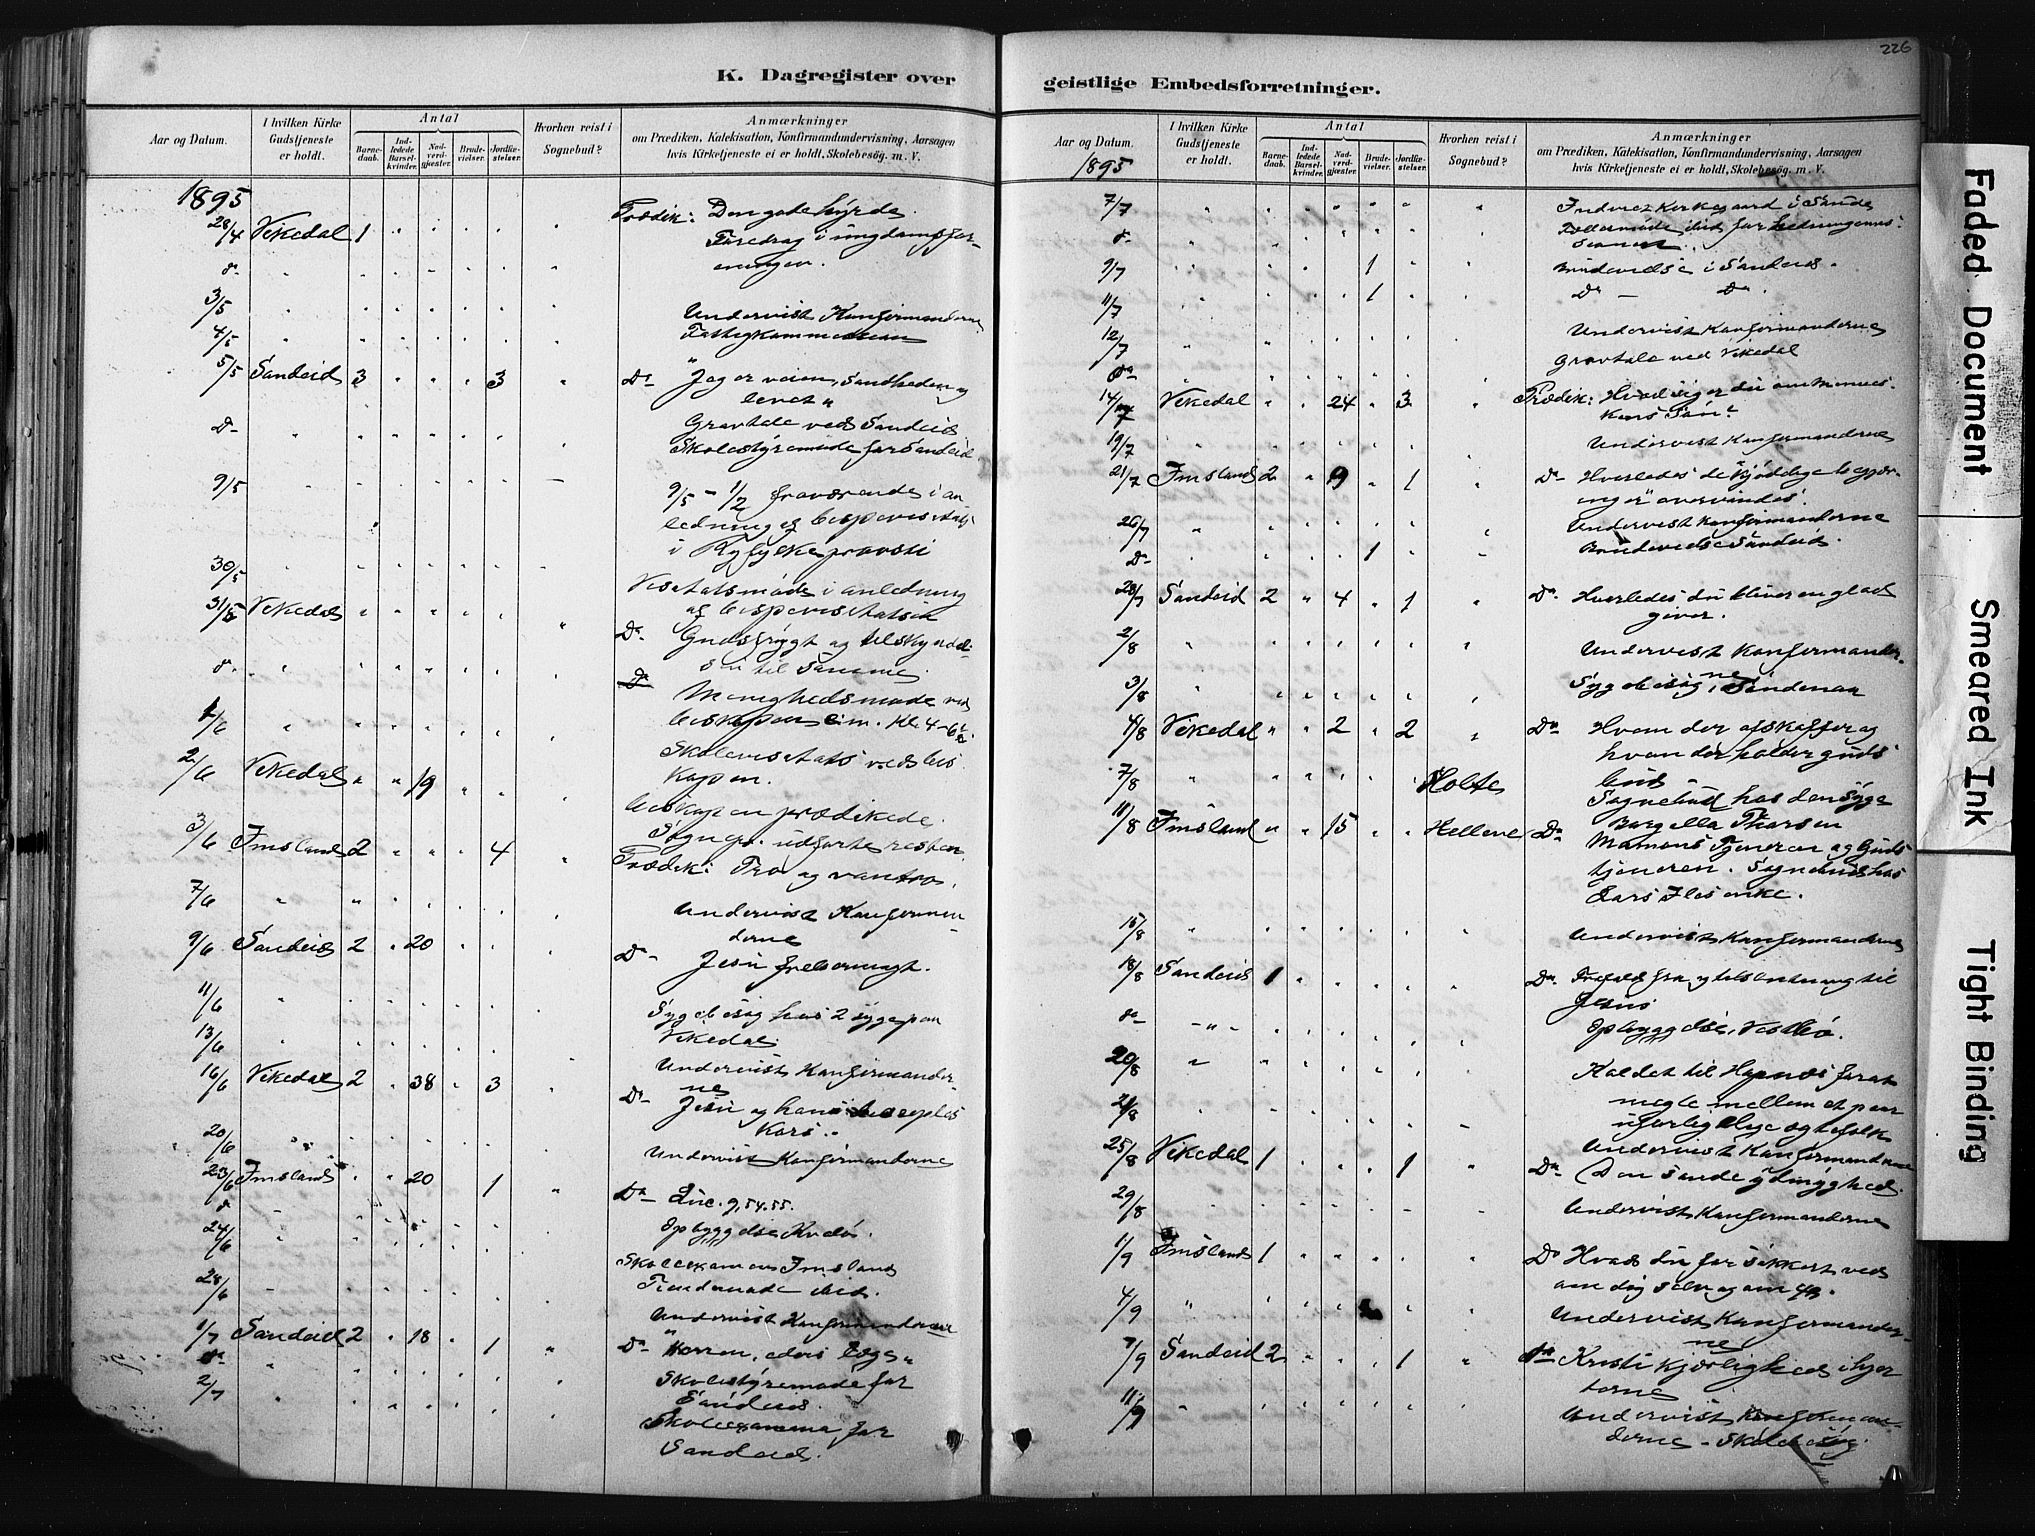 226
K. Dagregister over
geistlige Embedsforretninger.
Aar og Datum.
I hvilken Kirke Gudstjeneste er holdt.
Antal
Barnedaab.
Indledede Barselkvinder.
Nadverdgjæster.
Brudevielser.
Jordfæstelser.
Hvorhen reist i Sognebud?
Anmærkninger
om Prædiken, Katekisation, Konfirmandundervisning, Aarsagen
hvis Kirketjeneste ei er holdt, Skolebesøg. m. V.
1895
28/4 Vikedal 1 Prædik: Den gode hyrde.
Foredrag i ungdomsfor-
eningen.
3/5 Undervist Konfirmanderne
4/5 Fattigkommission
5/5 Sandeid 3 3 Do "Jeg er veien, Sandheden og
livet"
Do Gravtale ved Sandeid
Skolestyremøde for Sandeid
9/5 9/5 - 1/2 fraværende i an
ledning af bispevisitats
i Ryfylke provsti
30/5 Visitatsmøde i anledning
af bispevisitatsen
31/5 Vikedal Do Gudsfrygt og tilskyndel-
sen til samme.
Do Menighedsmøde ved
biskopen eim. Kl. 4-6 1/2.
1/6 Skolevisitats ved bis
kopen.
2/6 Vikedal 19 biskopen prædikede.
Sognepr. udførte resten.
3/6 Imsland 2 4 Prædik: Tro og vantro.
7/6 Undervist Konfirman
derne
9/6 Sandeid 2 20 Do Jesu frelsermagt.
11/6 Sygebesøg hos 2 syge paa
Vikedal
13/6 Undervist Konfirmander-
ne
16/6 Vikedal 2 38 3 Do Jesu og hans disciples
Kors.
20/6 Undervist Konfirmanderne
23/6 Imsland 20 1 Do Luc. 9, 54. 55.
Opbyggelse Kvaløi.
24/6 Skoleexamen Imsland
Tiendemøde ibid.
28/6 Undervist Konfirmanderne
1/7 Sandeid 2 18 1 Do "Herren, eders læge"
Do Skolestyremøde for
Sandeid.
2/7 Skoleexamen for
Sandeid.
Aar og Datum.
I hvilken Kirke Gudstjeneste er holdt.
Antal
Barnedaab.
Indledede Barselkvinder.
Nadverdgjæster.
Brudevielser.
Jordfæstelser.
Hvorhen reist i Sognebud?
Anmærkninger
om Prædiken, Katekisation, Konfirmandundervisning, Aarsagen
hvis Kirketjeneste ei er holdt, Skolebesøg. m. V.
1895
7/7 Indviet Kirkegaard i Sandeid
ibid for hedningemis-
sionen.
9/7 1 Brudevielse i Sandeid.
11/7 1 Do - Do.
12/7 Undervist Konfirmanderne
Do Gravtale ved Vikedal
14/7 Vikedal 24 3 Prædik: Hvad siger du om Mennes-
kens Søn?
19/7 Undervist Konfirmanderne
21/7 Imsland 2 9 1 Do Hvorledes de "kjødelige begjær-
inger" overvindes.
26/7 Undervist Konfirmanderne
Do 1 Brudevielse Sandeid.
28/7 Sandeid 2 4 1 Do Hvorledes du bliver en glad
giver.
2/8 Undervist Konfirmander-
ne
3/8 Sygebesøg, Søndenaa
4/8 Vikedal 2 2 Do Hvem der afskaffer og
hvem der holder Guds
bud
7/8 Holte Sognebud hos den syge
Thorsen
11/8 Imsland 15 Hellene Do Mamons Tjeneren og Guds
tjeneren. Sognebud hos
Lars
15/8 Undervist Konfirmanderne
18/8 Sandeid 1 Do Frafald fra og tilslutning til
Jesus
Do Opbyggelse, Vestbø.
20/8 Kaldet til Hapnes for at
megle mellem et par
uforligelige ægtefolk
21/8 Undervist Konfirmanderne
25/8 Vikedal 1 1 Do Den sande ydmyghed.
29/8 Undervist Konfirmanderne
1/9 Imsland 1 Do Hvad du for sikkert ved
om dig selv og om
4/9 Undervist Konfirmander-
ne
7/9 Sandeid 2 1 Do Kristi kjærlighed i hjer
terne
11/9 Undervist Konfirman-
derne - Skolebesøg.
Faded Document
Smeared Ink
Tight Binding